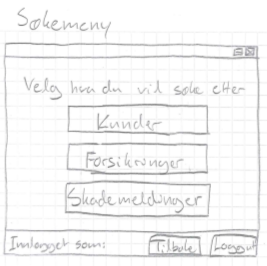 Søkemeny
Velg hva du vil søke etter
Kunder
Forsikringer
Skademeldinger
Innlogget som:
Tilbake
Loggut